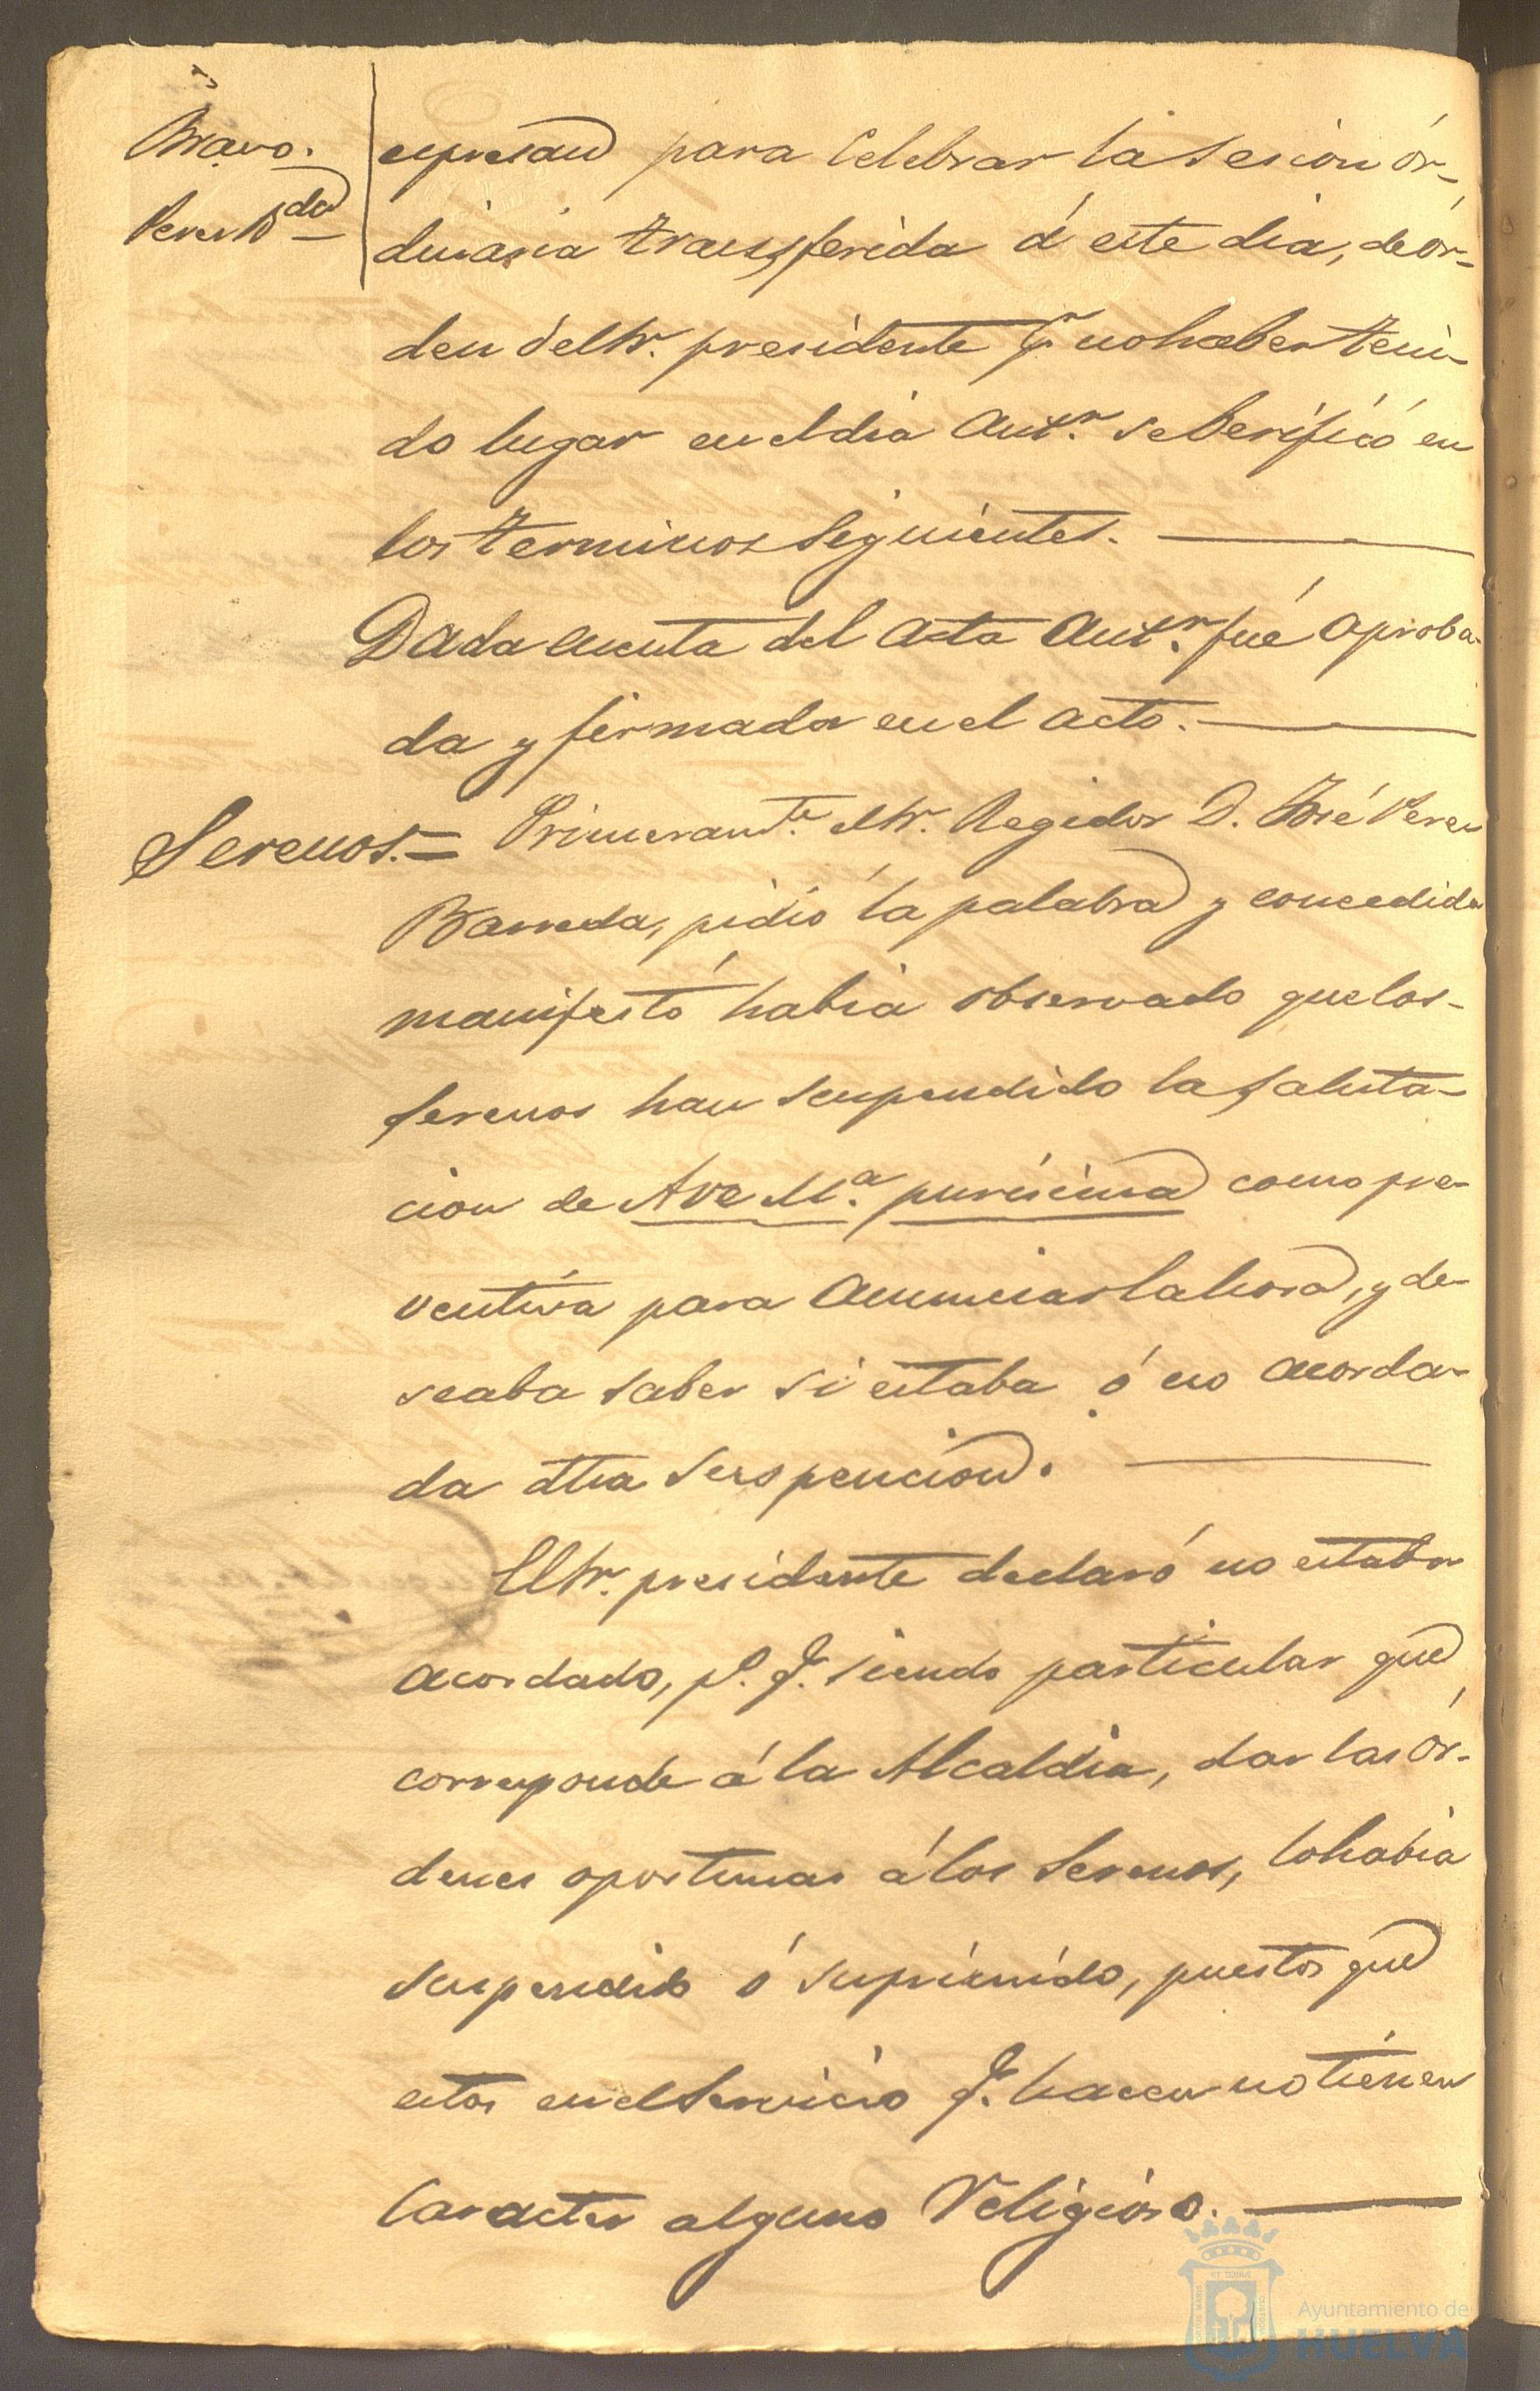 Bravo.
Perez B.da
espresan para celebrar la sesion ór-
dinaria transferida á este dia, de ór-
den del Sr. presidente p.r no haber teni-
do lugar en el dia ant.r se berificó en
los terminos siguientes.
Dada cuenta del acta ant.r fué aproba-
da y firmada en el acto.
Serenos.= Primeram.te el Sr. Regidor D. José Perez
Barreda, pidió la palabra y concedida
manifestó habia observado que los-
serenos han suspendido la saluta-
cion de Ave M.a purisima como pre-
ventiva para anunciar la hora, y de-
seaba saber si estaba ó no acorda-
da dha suspencion.
El Sr. presidente declaró no estaba
acordado, p.o q. siendo particular que
corresponde á la Alcaldia, dar las ór-
denes oportunas á los serenos, lo habia
suspendido ó suprimido, puesto que
estos en el servicio q. hacen no tienen
caracter alguno religioso.
Ayuntamiento de
HUELVA